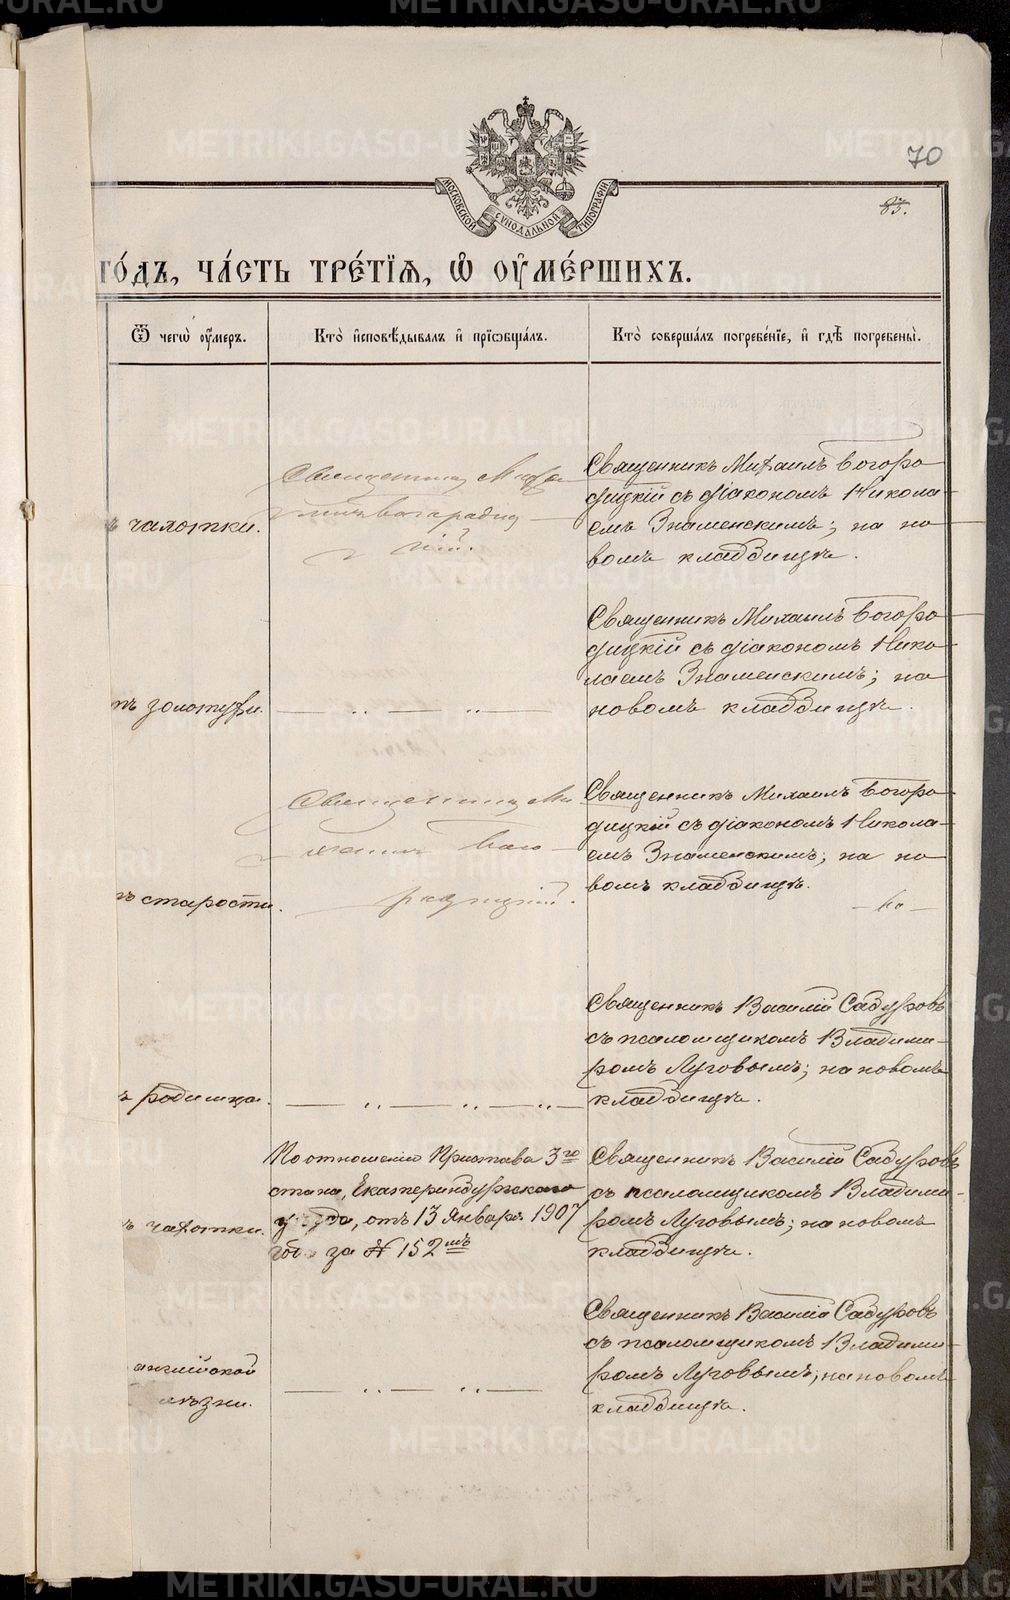 70
83.
МОСКОВСКОЙ СУНОДАЛЬНОЙ ТИПОГРАФІИ
ГО́ДЪ, ЧА́СТЬ ТРЕ́ТІѦ, Ѡ҆ ОУ҆МЕ́РШИХЪ.
Ѿ чегѡ̀ ᲂу҆́меръ.
Кто̀ и҆сповѣ́дывалъ и҆ прїѡбща́лъ.
Кто̀ соверша́лъ погребе́нїе, и҆ гдѣ̀ погребены̀.
чахотки.
Священникъ Миха
илъ Богородиц
кій.
Священникъ Михаилъ Богоро
дицкій съ діакономъ Никола
емъ Знаменскимъ; на но
вомъ кладбищѣ.
золотухи.
— „ — „ —
Священникъ Михаилъ Богоро
дицкій съ діакономъ Нико
лаемъ Знаменскимъ; на
новомъ кладбищѣ.
старости.
Священникъ Ми
хаилъ Бого
родицкій.
Священникъ Михаилъ Богоро
дицкій съ діакономъ Никола
емъ Знаменскимъ; на но
вомъ кладбищѣ.
родимца.
— „ — „ — „ —
Священникъ Василій Сабуровъ
съ псаломщикомъ Владими
ромъ Луговымъ; на новомъ
кладбищѣ.
чахотки.
По отношенію Пристава 3го
стана, Екатеринбургскаго
уѣзда, отъ 13 Января 1907
года за № 152мъ
Священникъ Василій Сабуровъ
съ псаломщикомъ Владими
ромъ Луговымъ; на новомъ
кладбищѣ.
английской
лѣзни.
— „ — „ —
Священникъ Василій Сабуровъ
съ псаломщикомъ Владими
ромъ Луговымъ; на новомъ
кладбищѣ.
METRIKI.GASO-URAL.RU